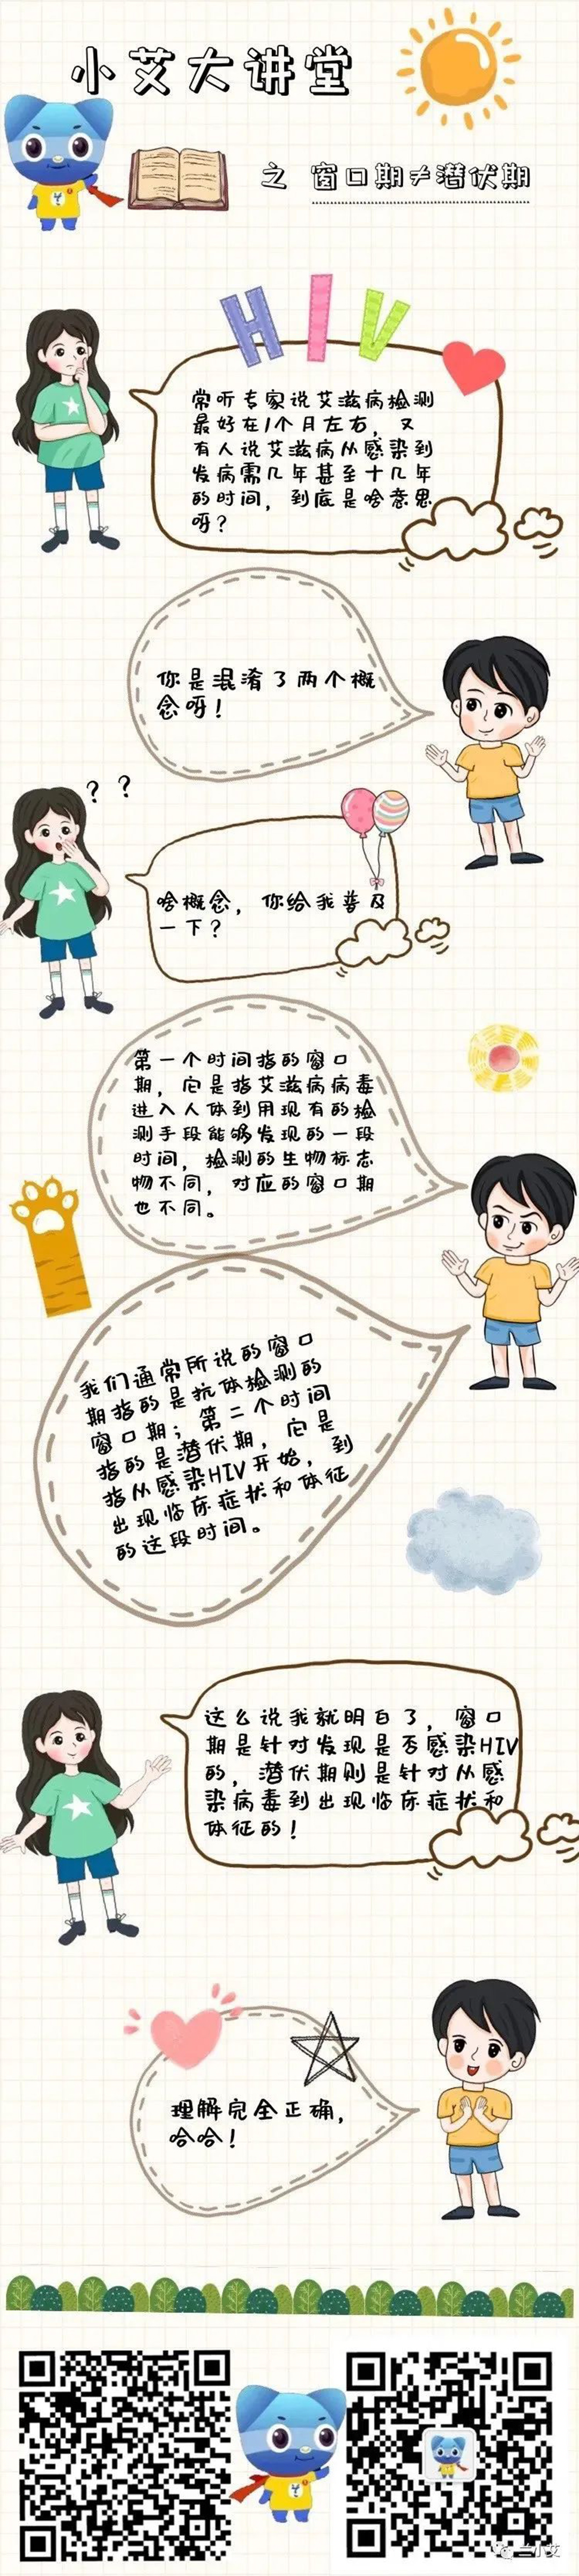 小艾大讲堂
之 窗口期≠潜伏期
HIV
常听专家说艾滋病检测
最好在1个月左右，又
有人说艾滋病从感染到
发病需几年甚至十几年
的时间，到底是啥意思
呀？
你是混淆了两个概
念呀！
? ?
啥概念，你给我普及
一下？
第一个时间指的窗口
期，它是指艾滋病病毒
进入人体到用现有的检
测手段能够发现的一段
时间，检测的生物标志
物不同，对应的窗口期
也不同。
我们通常所说的窗口
期指的是抗体检测的
窗口期；第二个时间
指的是潜伏期，它是
指从感染HIV开始，到
出现临床症状和体征
的这段时间。
这么说我就明白了，窗口
期是针对发现是否感染HIV
的，潜伏期则是针对从感
染病毒到出现临床症状和
体征的！
理解完全正确，
哈哈！
兰小艾